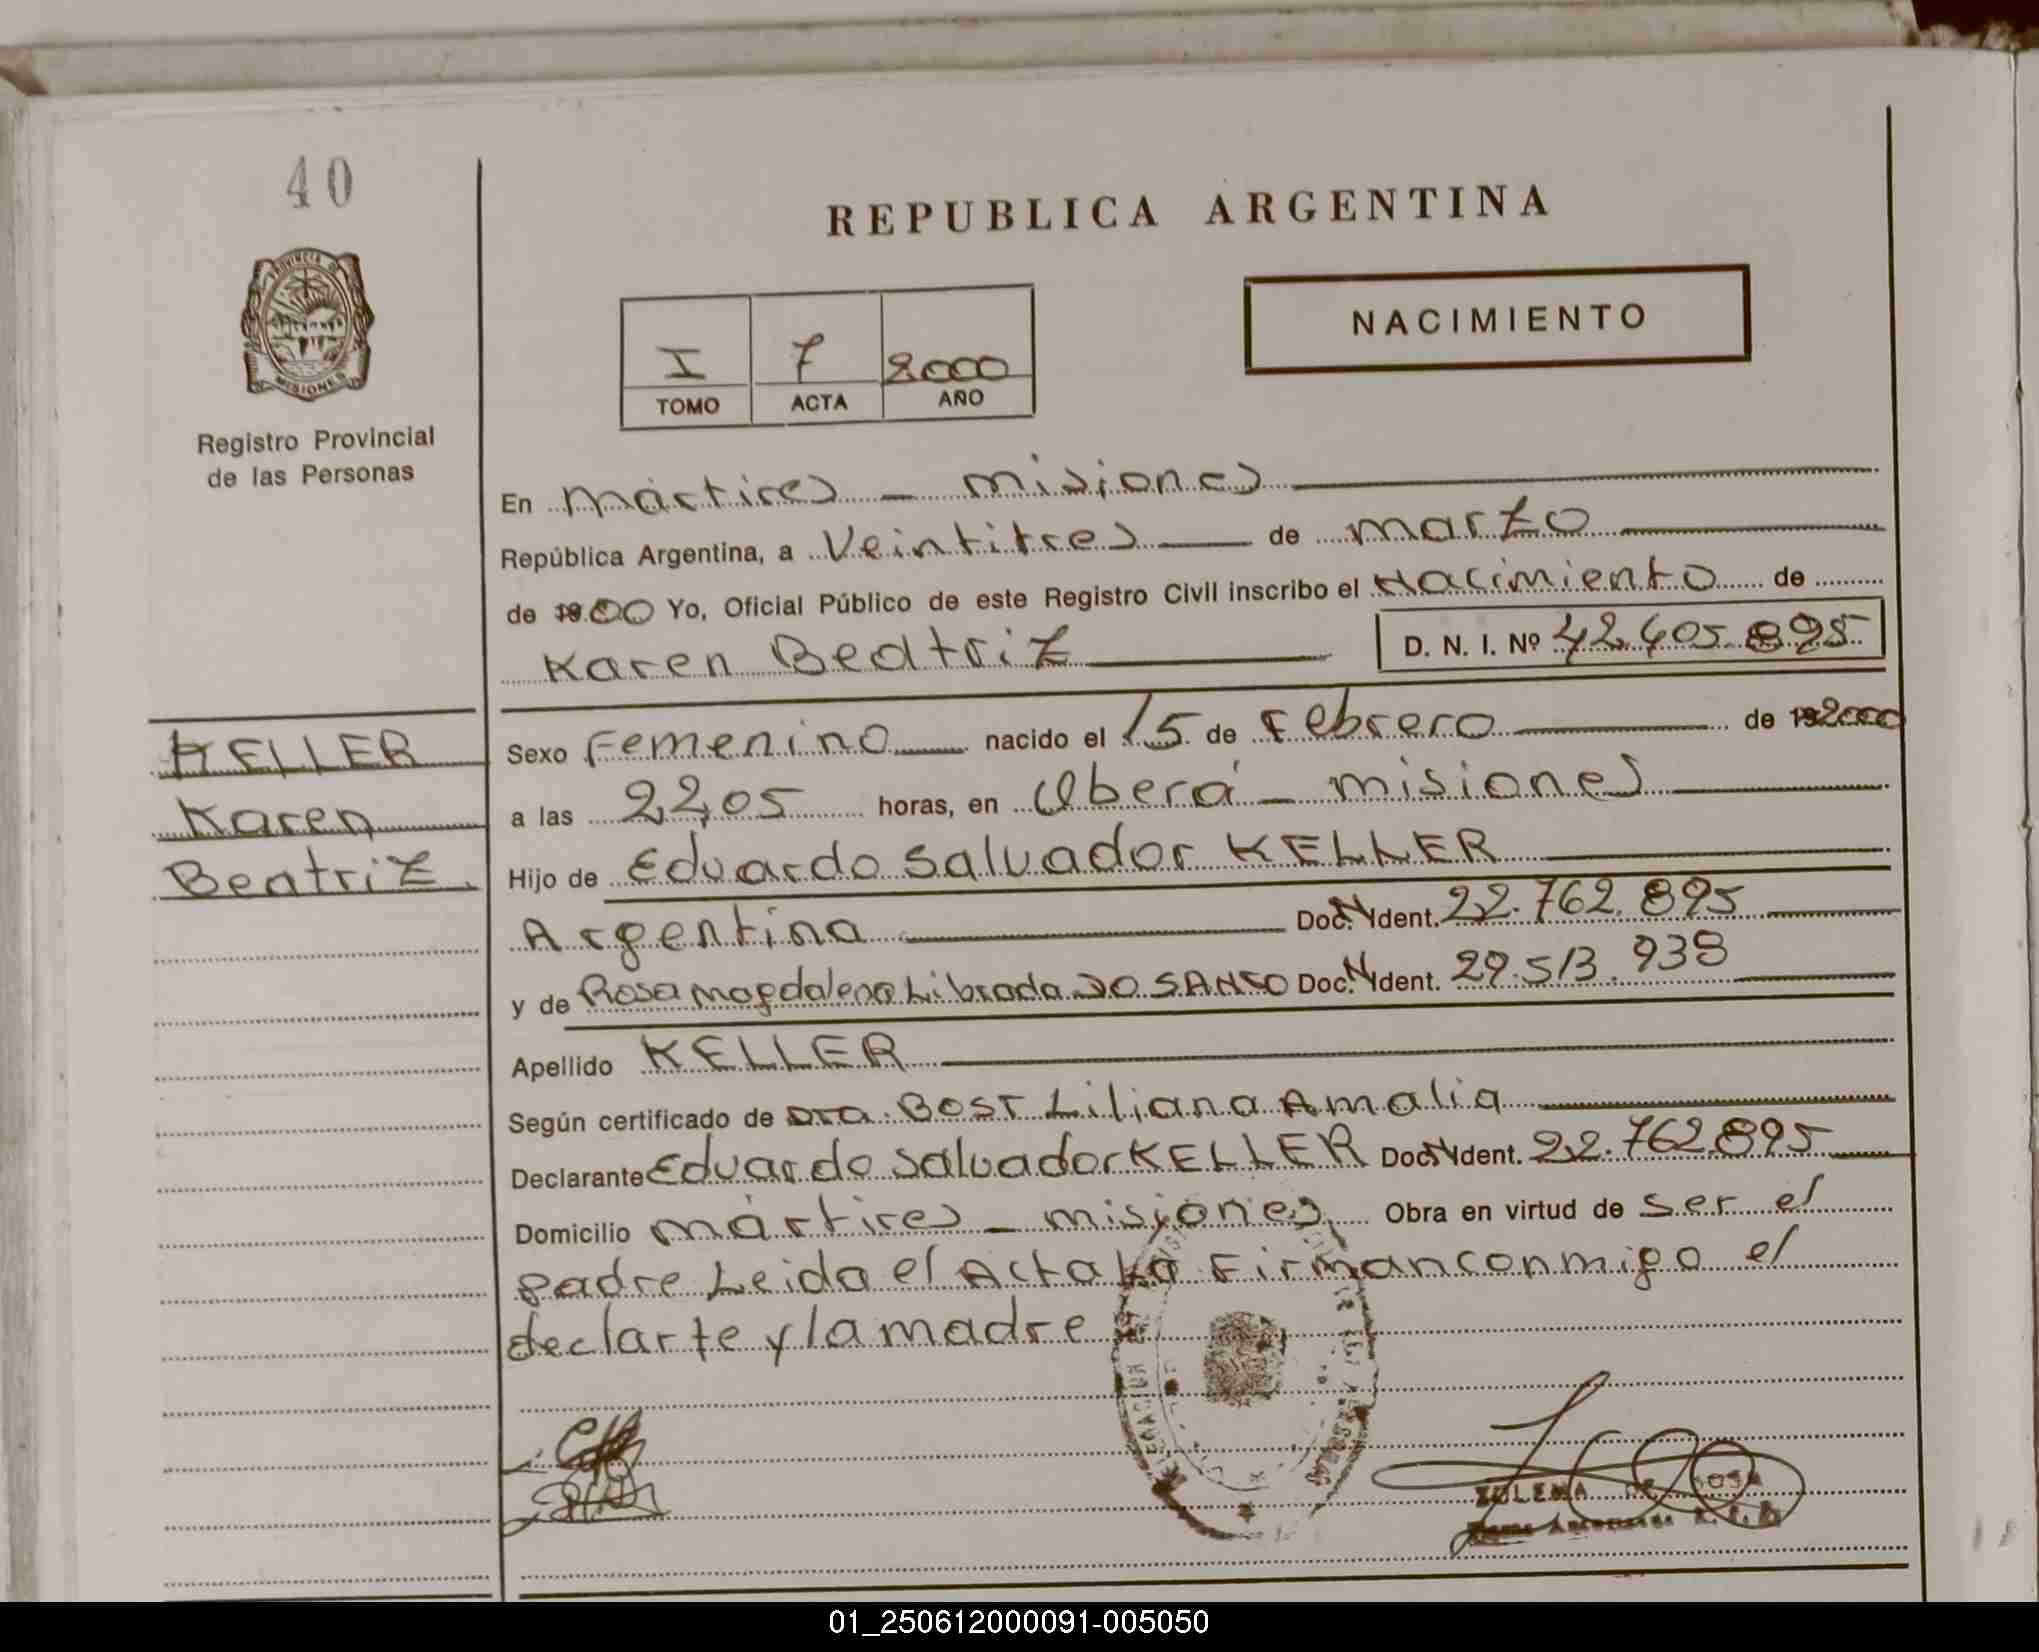 40
REPUBLICA ARGENTINA
NACIMIENTO
I 7 2000
TOMO ACTA AÑO
PROVINCIA DE
MISIONES
Registro Provincial
de las Personas
En Mártires - Misiones
República Argentina, a Veintitres de Marzo
de 19 00 Yo, Oficial Público de este Registro Civil inscribo el Nacimiento de
Karen Beatriz D. N. I. Nº 42.405.895
KELLER
Karen
Beatriz.
Sexo Femenino nacido el 15 de Febrero de 19 2000
a las 22,05 horas, en Oberá - Misiones
Hijo de Eduardo Salvador KELLER
Argentina Doc. N Ident. 22.762.895
y de Rosa Magdalena Librada DO SANTO Doc. N Ident. 29.513.938
Apellido KELLER
Según certificado de Dra. BOST Liliana Amalia
Declarante Eduardo Salvador KELLER Doc. N Ident. 22.762.895
Domicilio Mártires - Misiones Obra en virtud de ser el
padre Leida el Acta La Firman conmigo el
declarte y la madre
ZULEMA DE SOSA
01_250612000091-005050